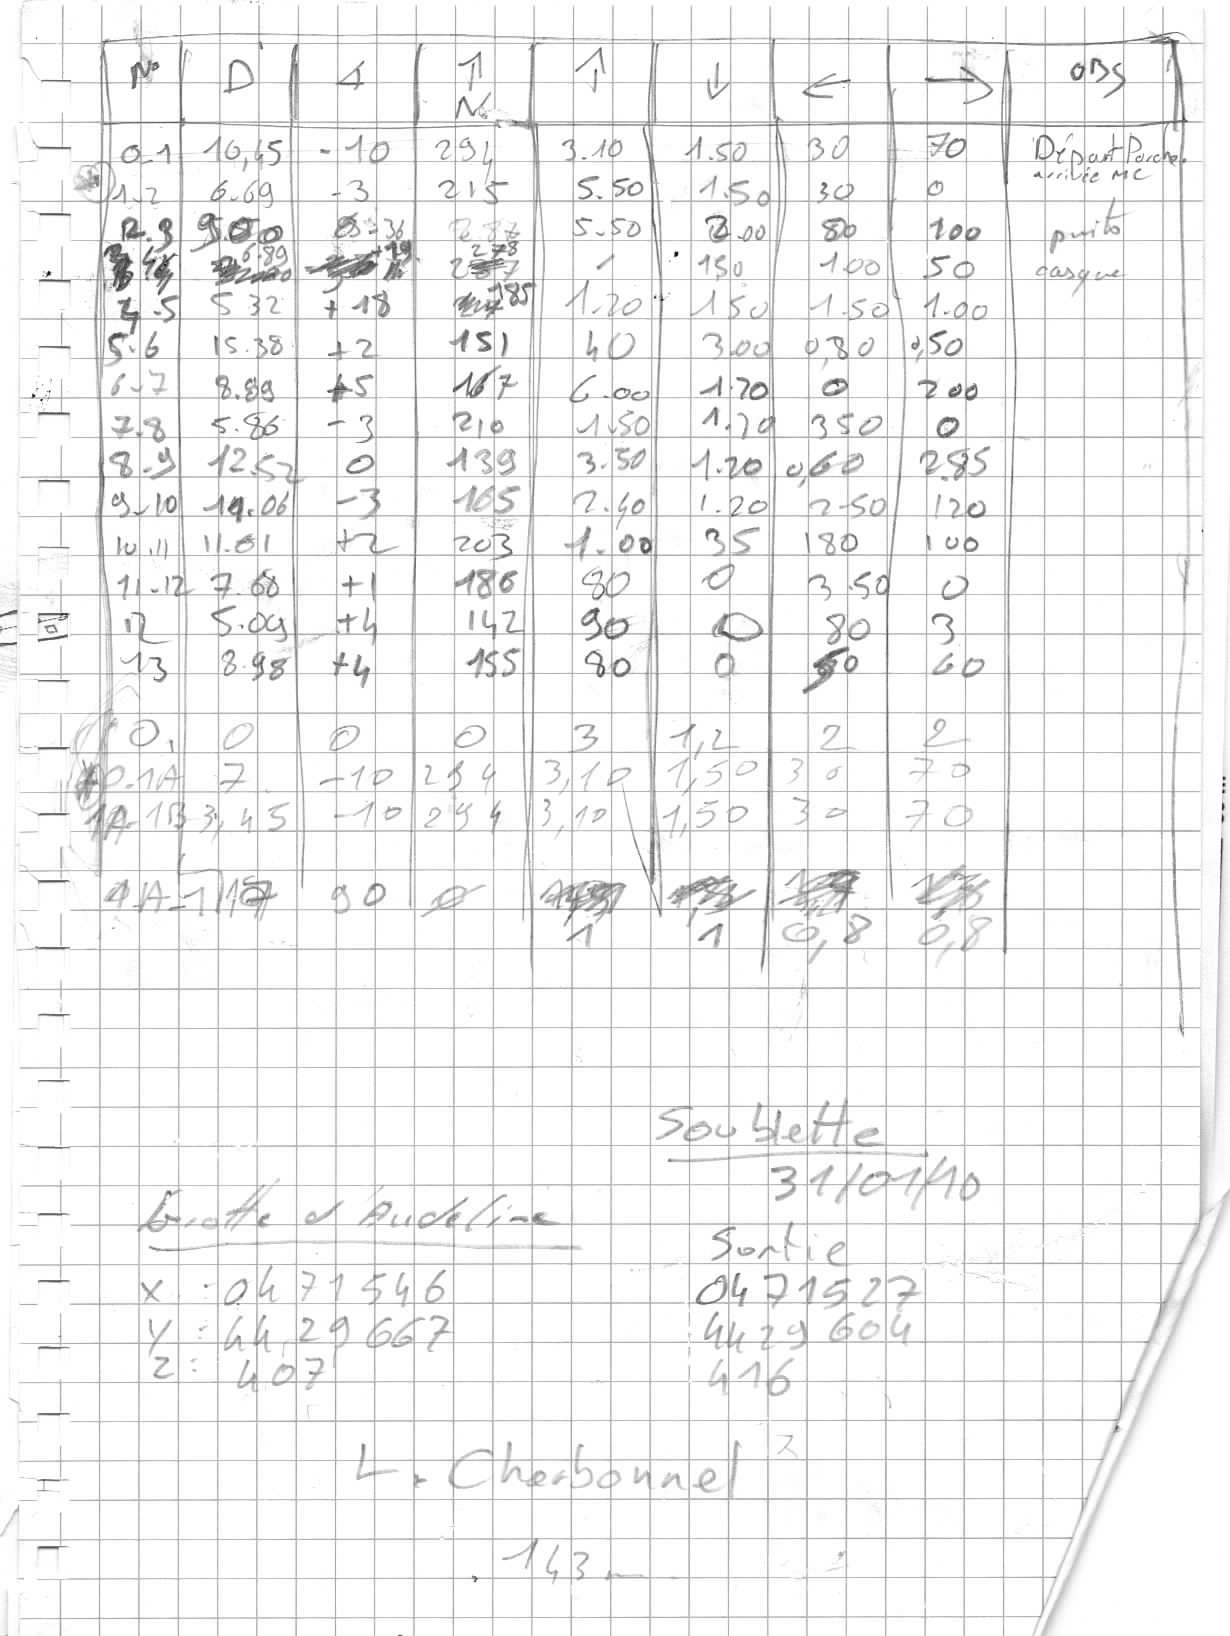 N° D ∡ ↑ N. ↑ ↓ ← → OBS
0.1 10,45 -10 294 3.10 1.50 30 70 Départ Porche
arrivée MC
1.2 6.69 -3 215 5.50 1.50 30 0
2.3 5.50 2.00 80 100 puits
6.89 278 150 100 50 casque
4.5 5 32 +18 185 1.20 150 1.50 1.00
5.6 15.38 +2 151 40 3.00 0,80 0,50
6-7 8.89 +5 167 6.00 1.20 0 200
7.8 5.86 -3 210 1.50 1.20 350 0
8-9 12.52 0 139 3.50 1.20 0,60 2.85
9-10 14.06 -3 165 2.40 1.20 2.50 120
10.11 11.01 +2 203 1.00 35 180 100
11-12 7.68 +1 186 80 0 3.50 0
12 5.09 +4 142 90 0 80 3
13 8.98 +4 155 80 0 60
0. 0 0 0 3 1,2 2 2
0.1A 7 -10 294 3,10 1,50 30 70
1A-1B 3,45 -10 294 3,10 1,50 30 70
1A-1 90 0
1 1 0,8 0,8
Soublette
31/01/10
Grotte d'Audeline
Sortie
X : 0471546 0471527
Y : 44,29 667 4429 604
Z : 407 416
L. Cherbonnel
143m